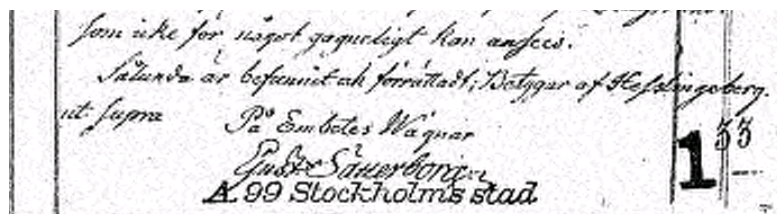 som icke för något gagneligt kan anses.
Sålunda är befunnit och förrättadt; Betygar af Hesslingeberg.
ut supra
På Embetes Wägnar
Gust Säterborg
A 99 Stockholms stad
1 33